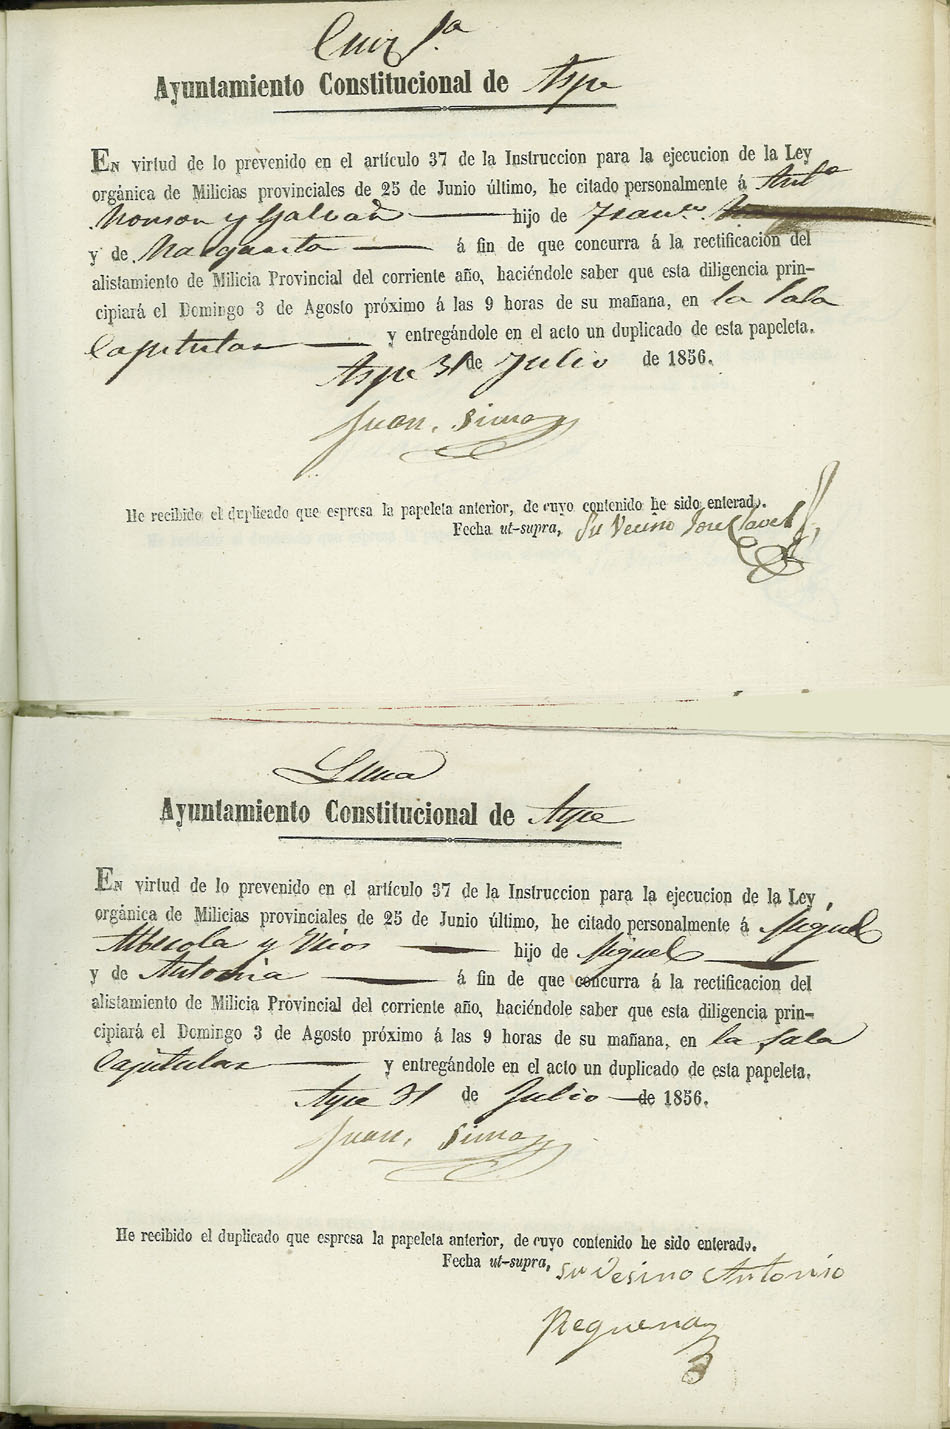 Cruz
Ayuntamiento Constitucional de Aspe
En virtud de lo prevenido en el artículo 37 de la Instruccion para la ejecucion de la Ley
orgánica de Milicias provinciales de 25 de Junio último, he citado personalmente á Antº
Monson y Galvañ hijo de Franco
y de Margarita á fin de que concurra á la rectificación del
alistamiento de Milicia Provincial del corriente año, haciéndole saber que esta diligencia prin-
cipiará el Domingo 3 de Agosto próximo á las 9 horas de su mañana, en la Sala
Capitular y entregándole en el acto un duplicado de esta papeleta.
Aspe 31 de Julio de 1856.
Juan Simon
He recibido el duplicado que espresa la papeleta anterior, de cuyo contenido he sido enterado.
Fecha ut-supra, Su Vecino Jose Clavel
Luna
Ayuntamiento Constitucional de Aspe
En virtud de lo prevenido en el artículo 37 de la Instruccion para la ejecucion de la Ley
orgánica de Milicias provinciales de 25 de Junio último, he citado personalmente á Miguel
y hijo de Miguel
y de Antonia á fin de que concurra á la rectificacion del
alistamiento de Milicia Provincial del corriente año, haciéndole saber que esta diligencia prin-
cipiará el Domingo 3 de Agosto próximo á las 9 horas de su mañana, en la Sala
Capitular y entregándole en el acto un duplicado de esta papeleta.
Aspe 31 de Julio de 1856.
Juan Simon
He recibido el duplicado que espresa la papeleta anterior, de cuyo contenido he sido enterado.
Fecha ut-supra, su Vesino Antonio
Requena